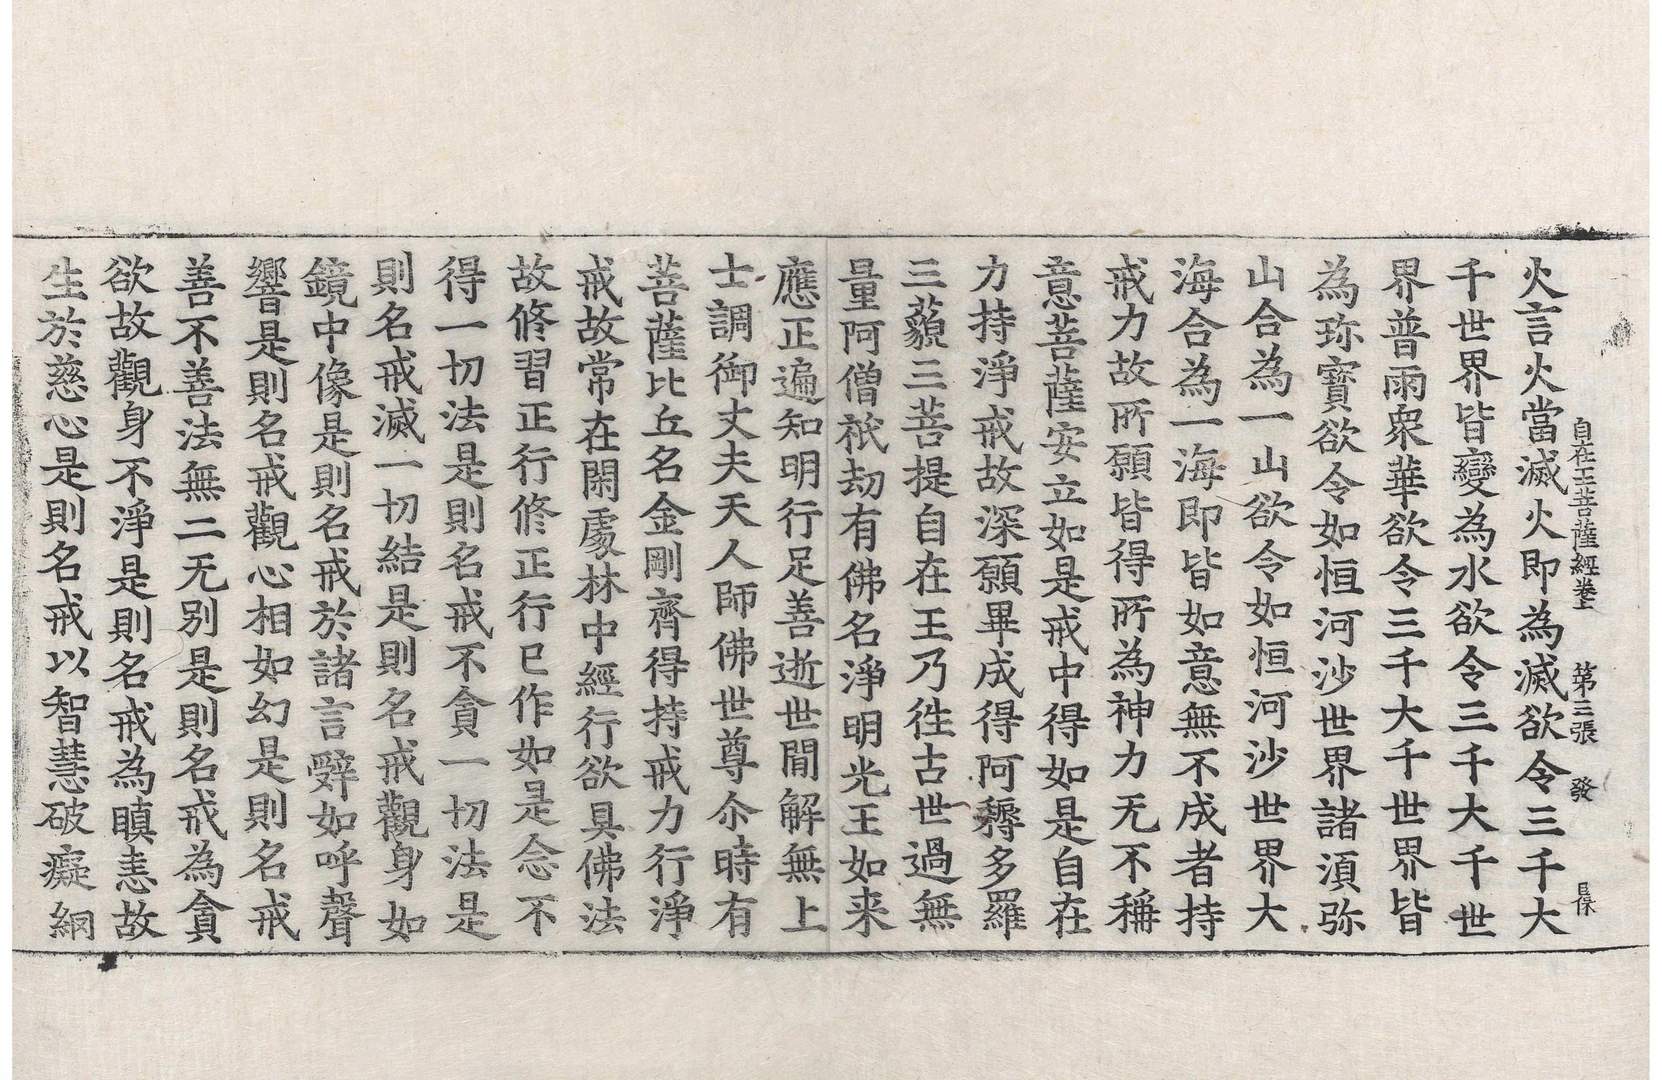 自在王菩薩經卷上 第三張 發 
火言火當滅火即為滅欲令三千大
千世界皆變為水欲令三千大千世
界普雨衆華欲令三千大千世界皆
為珎寳欲令如恒河沙世界諸湏弥
山合為一山欲令如恒河沙世界大
海合為一海即皆如意無不成者持
戒力故所願皆得所為神力无不稱
意菩薩安立如是戒中得如是自在
力持淨戒故深願畢成得阿耨多羅
三藐三菩提自在王乃徃古世過無
量阿僧祇劫有佛名淨明光王如来
應正遍知明行足善逝世閒解無上
士調御丈夫天人師佛世尊尒時有
菩薩比丘名金剛齊得持戒力行淨
戒故常在閑處林中經行欲具佛法
故修習正行修正行已作如是念不
得一切法是則名戒不貪一切法是
則名戒滅一切結是則名戒觀身如
鏡中像是則名戒於諸言辭如呼聲
響是則名戒觀心相如幻是則名戒
善不善法無二无别是則名戒為貪
欲故觀身不淨是則名戒為瞋恚故
生於慈心是則名戒以智慧破癡網